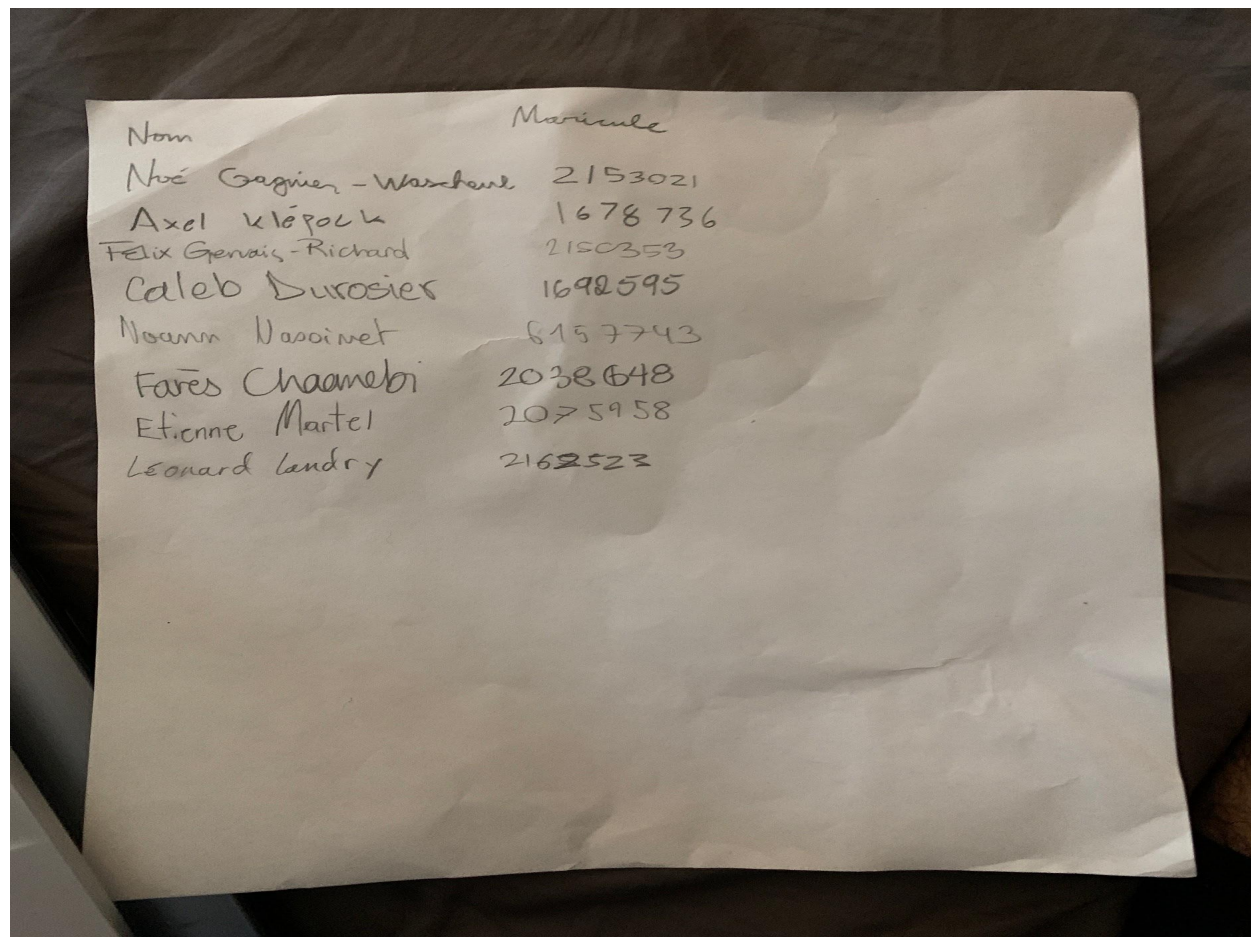 Nom Maricule
Noé Gagnier-Wascheul 2153021
Axel Klépock 1678736
Felix Gervais-Richard 2150353
Caleb Durosier 1692595
Noann 6157743
Farès Chaamebi 2038648
Etienne Martel 2075958
Léonard Landry 2162523